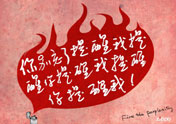 你别忘了提醒我提
醒你提醒我提醒
你提醒我！
Fine the perplexity